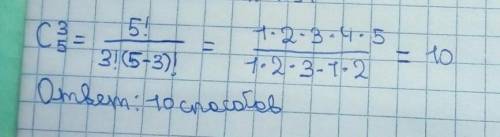 C₅³ = 5! / 3!(5-3)! = 1·2·3·4·5 / 1·2·3·1·2 = 10
Ответ: 10 способов